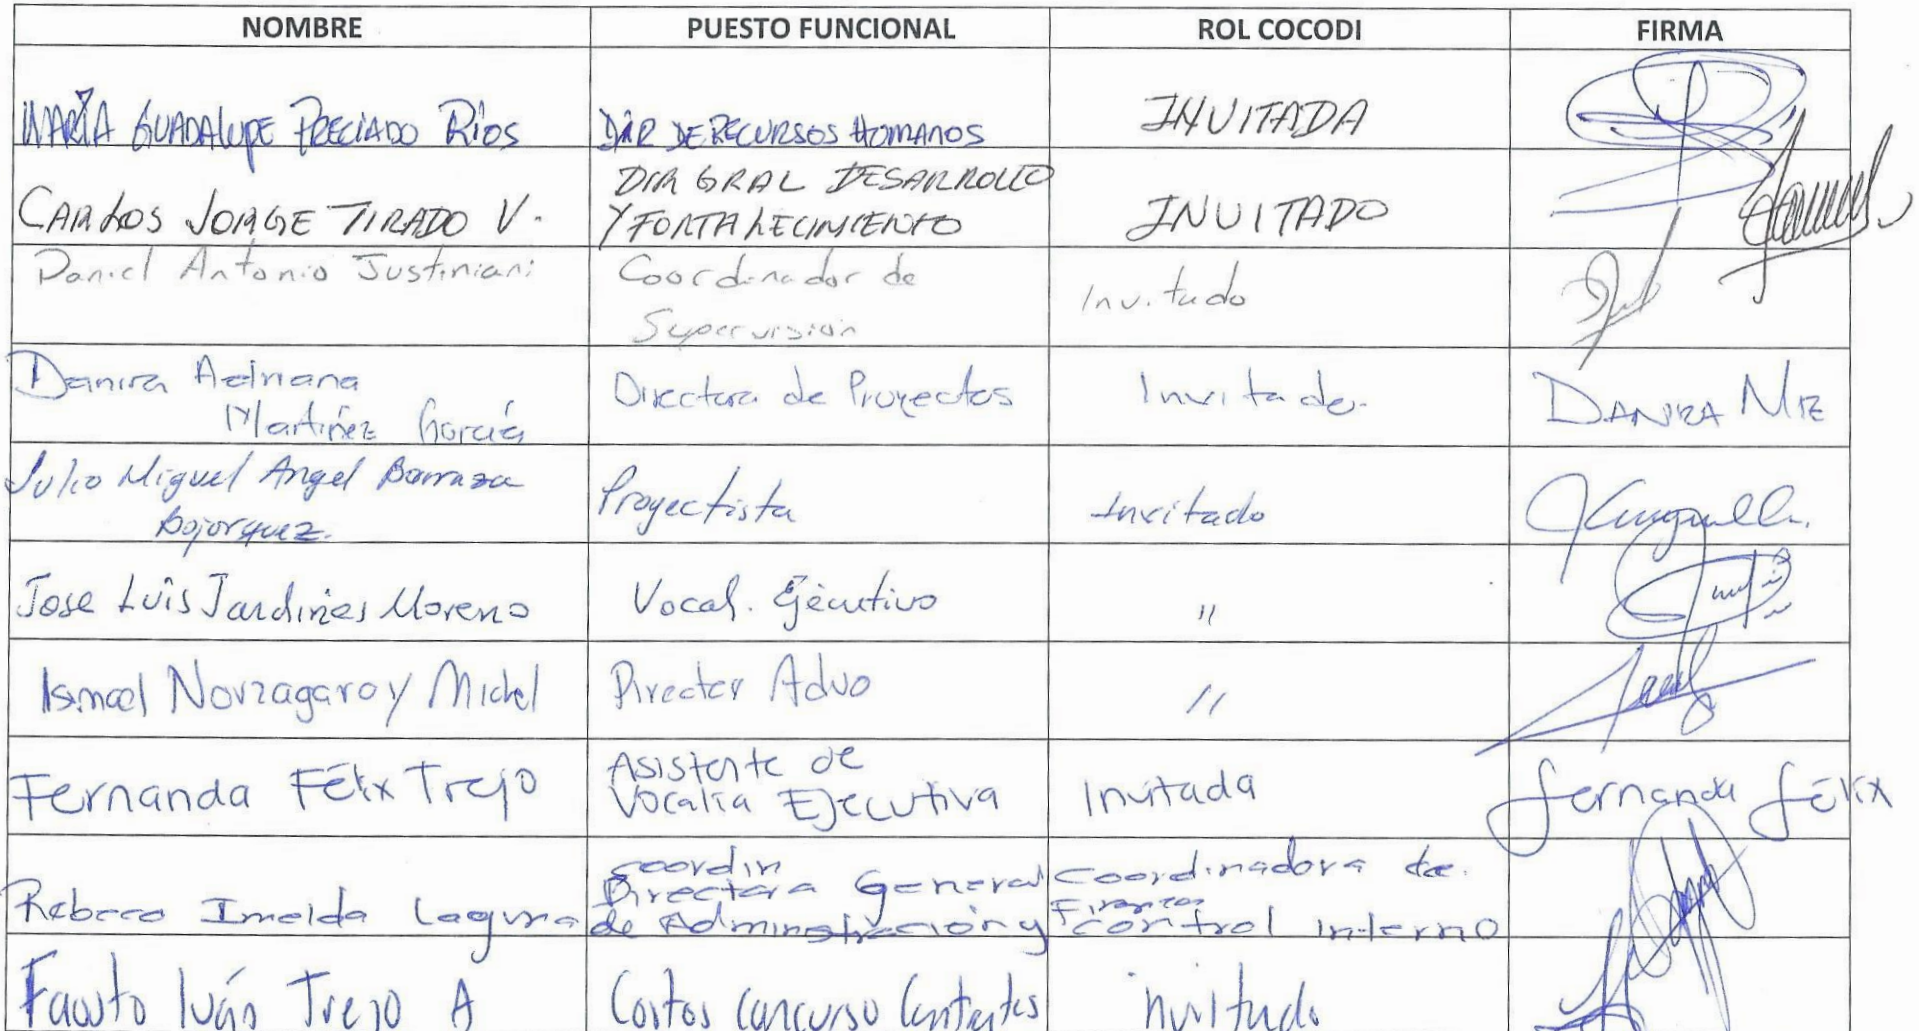 NOMBRE PUESTO FUNCIONAL ROL COCODI FIRMA
MARÍA GUADALUPE PRECIADO RíOS DIR DE RECURSOS HUMANOS INVITADA
CARLOS JORGE TIRADO V. DIR GRAL DESARROLLO
Y FORTALECIMIENTO INVITADO
Daniel Antonio Justiniani Coordinador de
Supervisión Invitado
Danira Adriana
Martínez García Directora de Proyectos Invitada. DANIRA MTZ
Julio Miguel Angel Barraza
Bojorquez. Proyectista Invitado
Jose Luis Jardines Moreno Vocal. Ejecutivo "
Ismael Norzagaray Michel Director Advo "
Fernanda Félix Trejo Asistente de
Vocalía Ejecutiva Invitada Fernanda Félix
Rebeca Imelda Laguna coordin
Directora General
de Administración y Finanzas Coordinadora de
control interno
Fausto Iván Trejo A Costos Concurso Contratos invitado